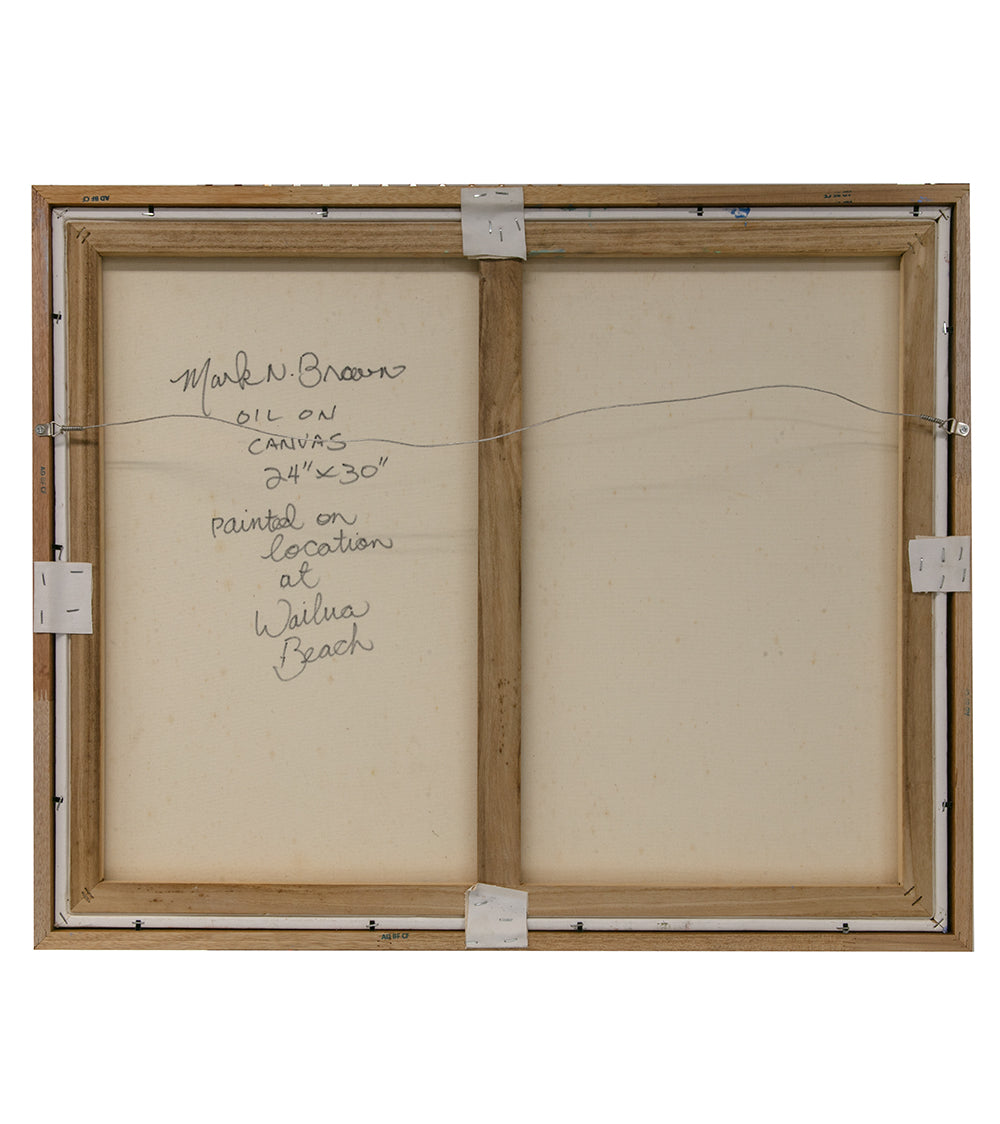 AD BF CF
Mark N. Brown
OIL ON
CANVAS
24" x 30"
painted on
location
at
Wailua
Beach
AD BF CF